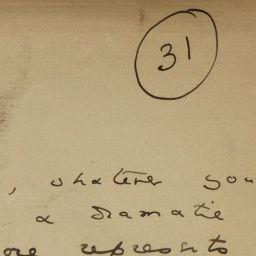 31
, whatever you
a dramatic
ore represents